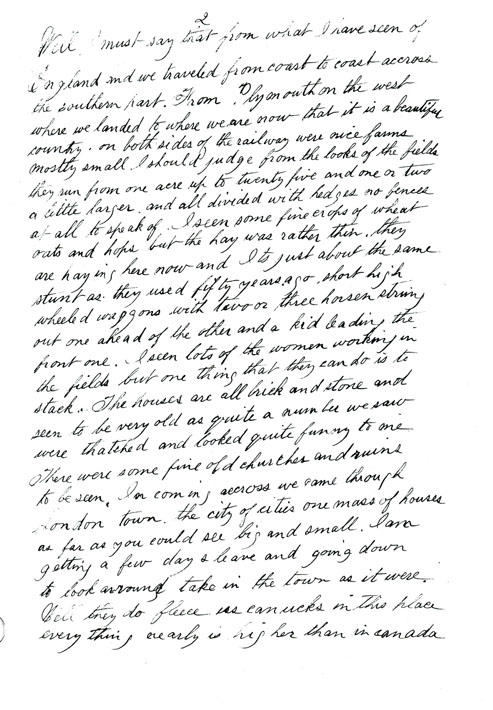 2
Well I must say that from what I have seen of
England and we traveled from coast to coast accross
the southern part. From Plymouth on the west
where we landed to where we are now that it is a beautiful
country. on both sides of the railway were nice farms
mostly small. I should judge from the looks of the fields
they run from one acre up to twenty five and one or two
a little larger. and all divided with hedges no fences
at all to speak of. I seen some fine crops of wheat
oats and hops but the hay was rather thin. they
are haying here now and Its just about the same
stunt as they used fifty years ago. short high
wheeled waggons with two or three horses strung
out one ahead of the other and a kid leading the
front one. I seen lots of the women working in
the fields but one thing that they can do is to
stack. The houses are all brick and stone and
seen to be very old as quite a number we saw
were thatched and looked quite funny to me
There were some fine old churches and ruins
to be seen. In coming accross we came through
London town. the city of cities one mass of houses
as far as you could see big and small. I am
getting a few days leave and going down
to look arround take in the town as it were.
Well they do fleece us canucks in this place
every thing nearly is higher than in canada